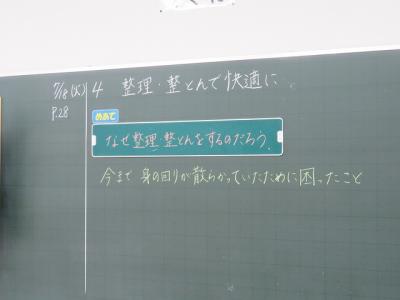 7/18(火) 4 整理・整とんで快適に
P.28
めあて
なぜ整理・整とんをするのだろう。
今まで 身の回りが散らかっていたために困ったこと